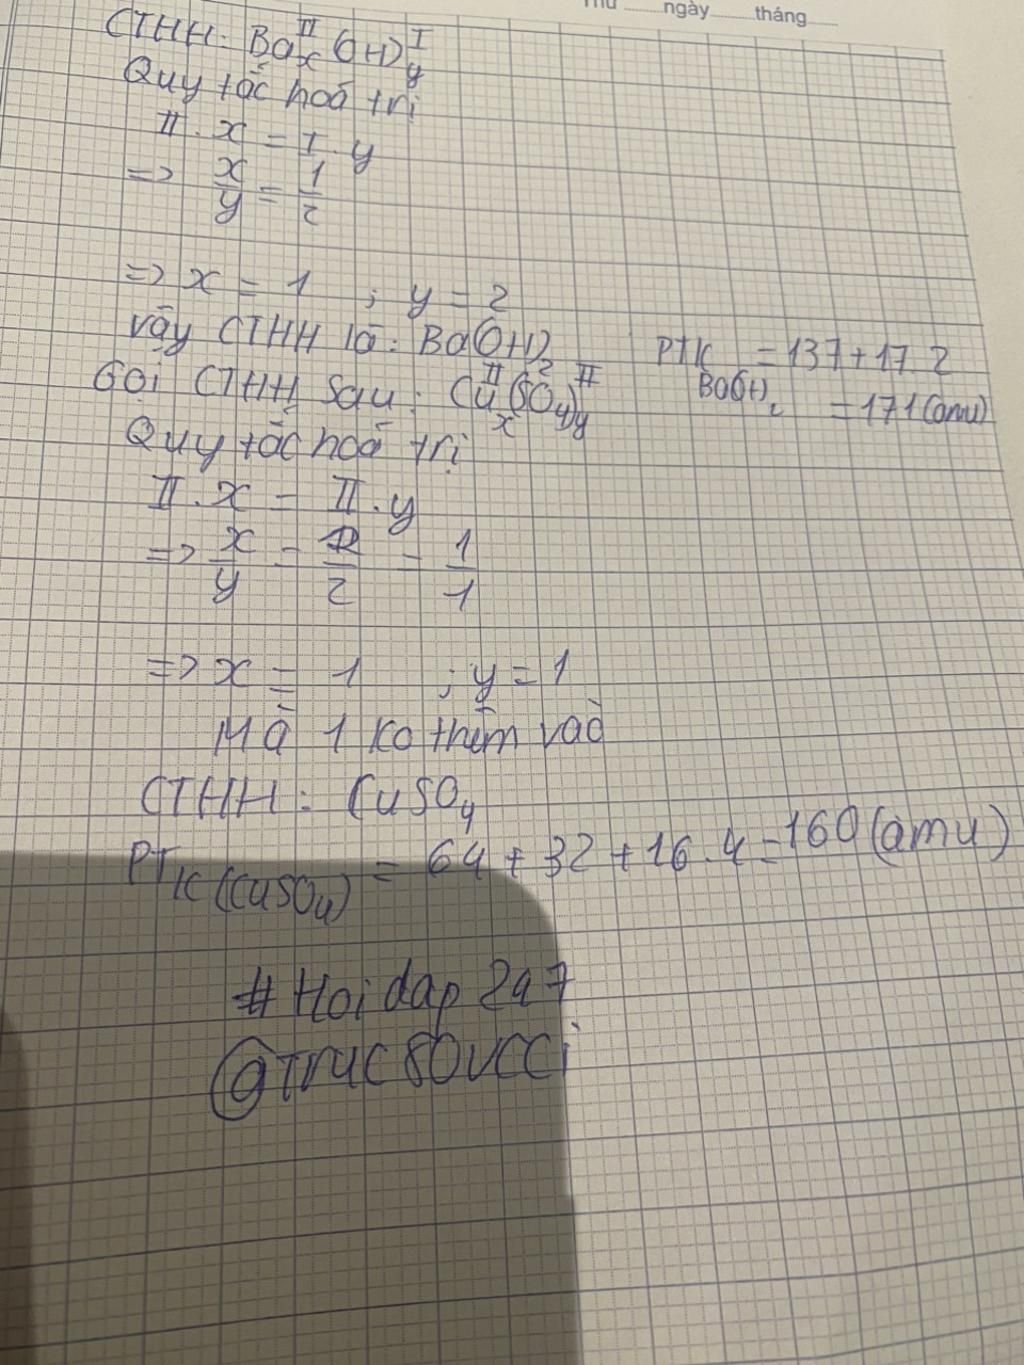 Thứ ........ngày........tháng........
CTHH: Baₓᴵᴵ(OH)ᵧᴵ
Quy tắc hoá trị
II . x = I . y
=> x/y = 1/2
=> x = 1 ; y = 2
Vậy CTHH là: Ba(OH)₂
PTK Ba(OH)₂ = 137 + 17.2
= 171 (amu)
Gọi CTHH sau: Cuₓᴵᴵ(SO₄)ᵧᴵᴵ
Quy tắc hoá trị
II . x = II . y
=> x/y = 2/2 = 1/1
=> x = 1 ; y = 1
Mà 1 ko thêm vào
CTHH: CuSO₄
PTK (CuSO₄) = 64 + 32 + 16.4 = 160 (amu)
# Hoidap 2a7